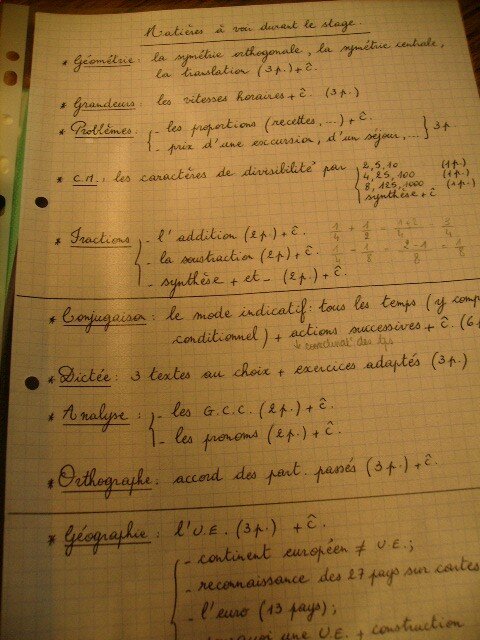 Matières à voir durant le stage.
* Géométrie : la symétrie orthogonale, la symétrie centrale,
la translation (3p.) + ĉ.
* Grandeurs : les vitesses horaires + ĉ. (3p.)
* Problèmes : - les proportions (recettes, ...) + ĉ.
- prix d'une excursion, d'un séjour, ... } 3p
* C.N. : les caractères de divisibilité par { 2, 5, 10 (1p.)
4, 25, 100 (1p.)
8, 125, 1000 (1p.)
synthèse + ĉ
* Fractions { - l'addition (2p.) + ĉ. 1/4 + 1/8 = 1+2/ =
- la soustraction (2p.) + ĉ. 1/4 - 1/8 = 2-1/8 = 1/8
- synthèse + et - (2p.) + ĉ.
* Conjugaison : le mode indicatif : tous les temps (y comp
conditionnel) + actions successives + ĉ. (6p
des tps
* Dictée : 3 textes au choix + exercices adaptés (3p.)
* Analyse : { - les G.C.C. (2p.) + ĉ.
- les pronoms (2p.) + ĉ.
* Orthographe : accord des part. passés (3p.) + ĉ.
* Géographie : l'U.E. (3p.) + ĉ.
- continent européen ≠ U.E. ;
- reconnaissance des 27 pays sur cartes
- l'euro (13 pays) ;
une U.E. + construction